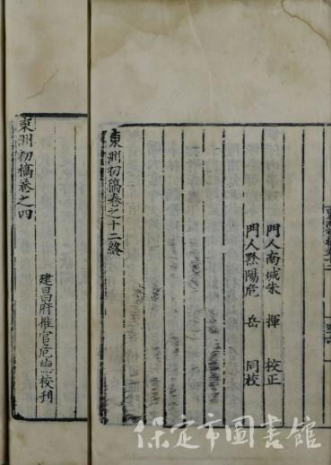 門人南城朱 揮 校正
門人陽危 岳 同校
東洲初稿卷之十二終
建昌府推官危校刊
東洲初槁卷之四
保定市圖書館